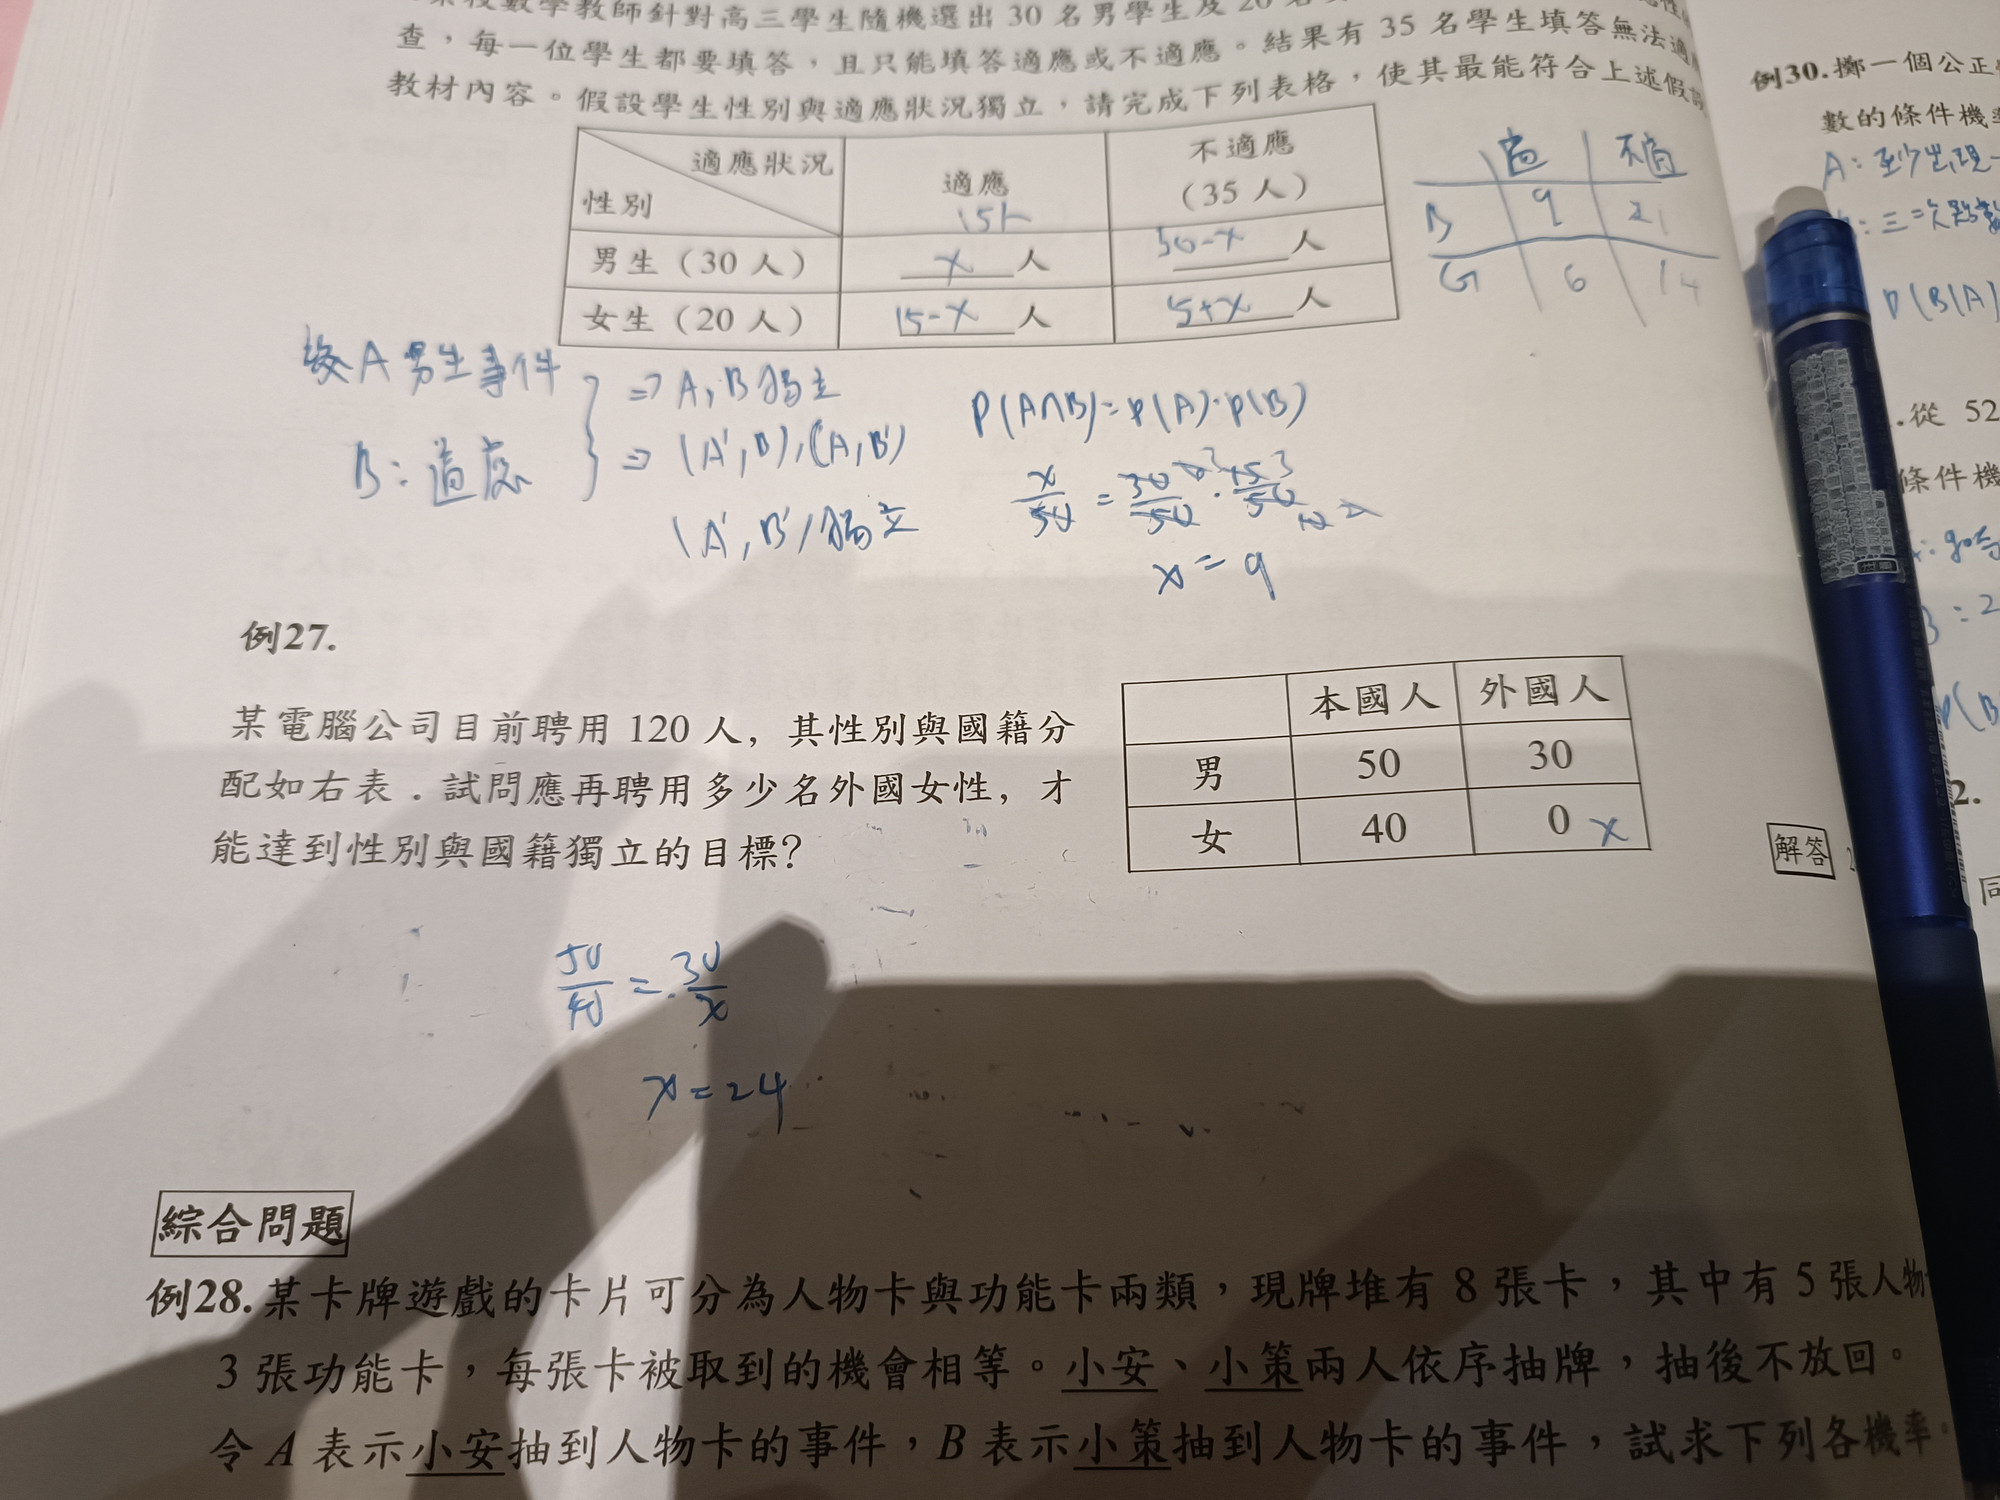 某校數學教師針對高三學生隨機選出 30 名男學生及 20 名
查，每一位學生都要填答，且只能填答適應或不適應。結果有 35 名學生填答無法適
教材內容。假設學生性別與適應狀況獨立，請完成下列表格，使其最能符合上述假
適應狀況 適應 不適應
性別 15人 (35 人)
男生（30 人） x 人 30-x 人
女生（20 人） 15-x 人 5+x 人
適 不適
B 9 21
G 6 14
A 男生事件 ⇒ A, B 獨立
B：適應 ⇒ (A', B), (A, B')
(A', B') 獨立
P(A∩B)=P(A)·P(B)
x/50 = 30/50 · 15/50
x = 9
例27.
某電腦公司目前聘用 120 人，其性別與國籍分
配如右表．試問應再聘用多少名外國女性，才
能達到性別與國籍獨立的目標?
本國人 外國人
男 50 30
女 40 0 x
50/40 = 30/x
x = 24
綜合問題
例28.某卡牌遊戲的卡片可分為人物卡與功能卡兩類，現牌堆有 8 張卡，其中有 5 張人物
3 張功能卡，每張卡被取到的機會相等。小安、小策兩人依序抽牌，抽後不放回。
令 A 表示小安抽到人物卡的事件，B 表示小策抽到人物卡的事件，試求下列各機率。
例30.擲一個公正
數的條件機
A：至少出現一
：三次點數
P(B|A)
從 52
條件機
2.
解答
同